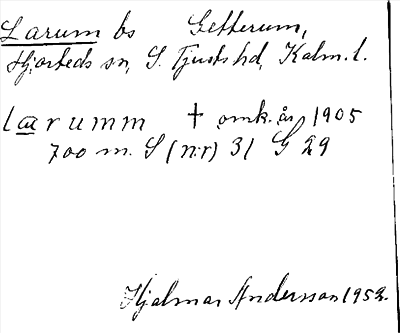 Larum bs Getterum,
Hjorteds sn, S. Tjusts hd, Kalm. l.
lærumm † omk. år 1905
700 m. S (n:r) 31 G 29
Hjalmar Andersson 1952.